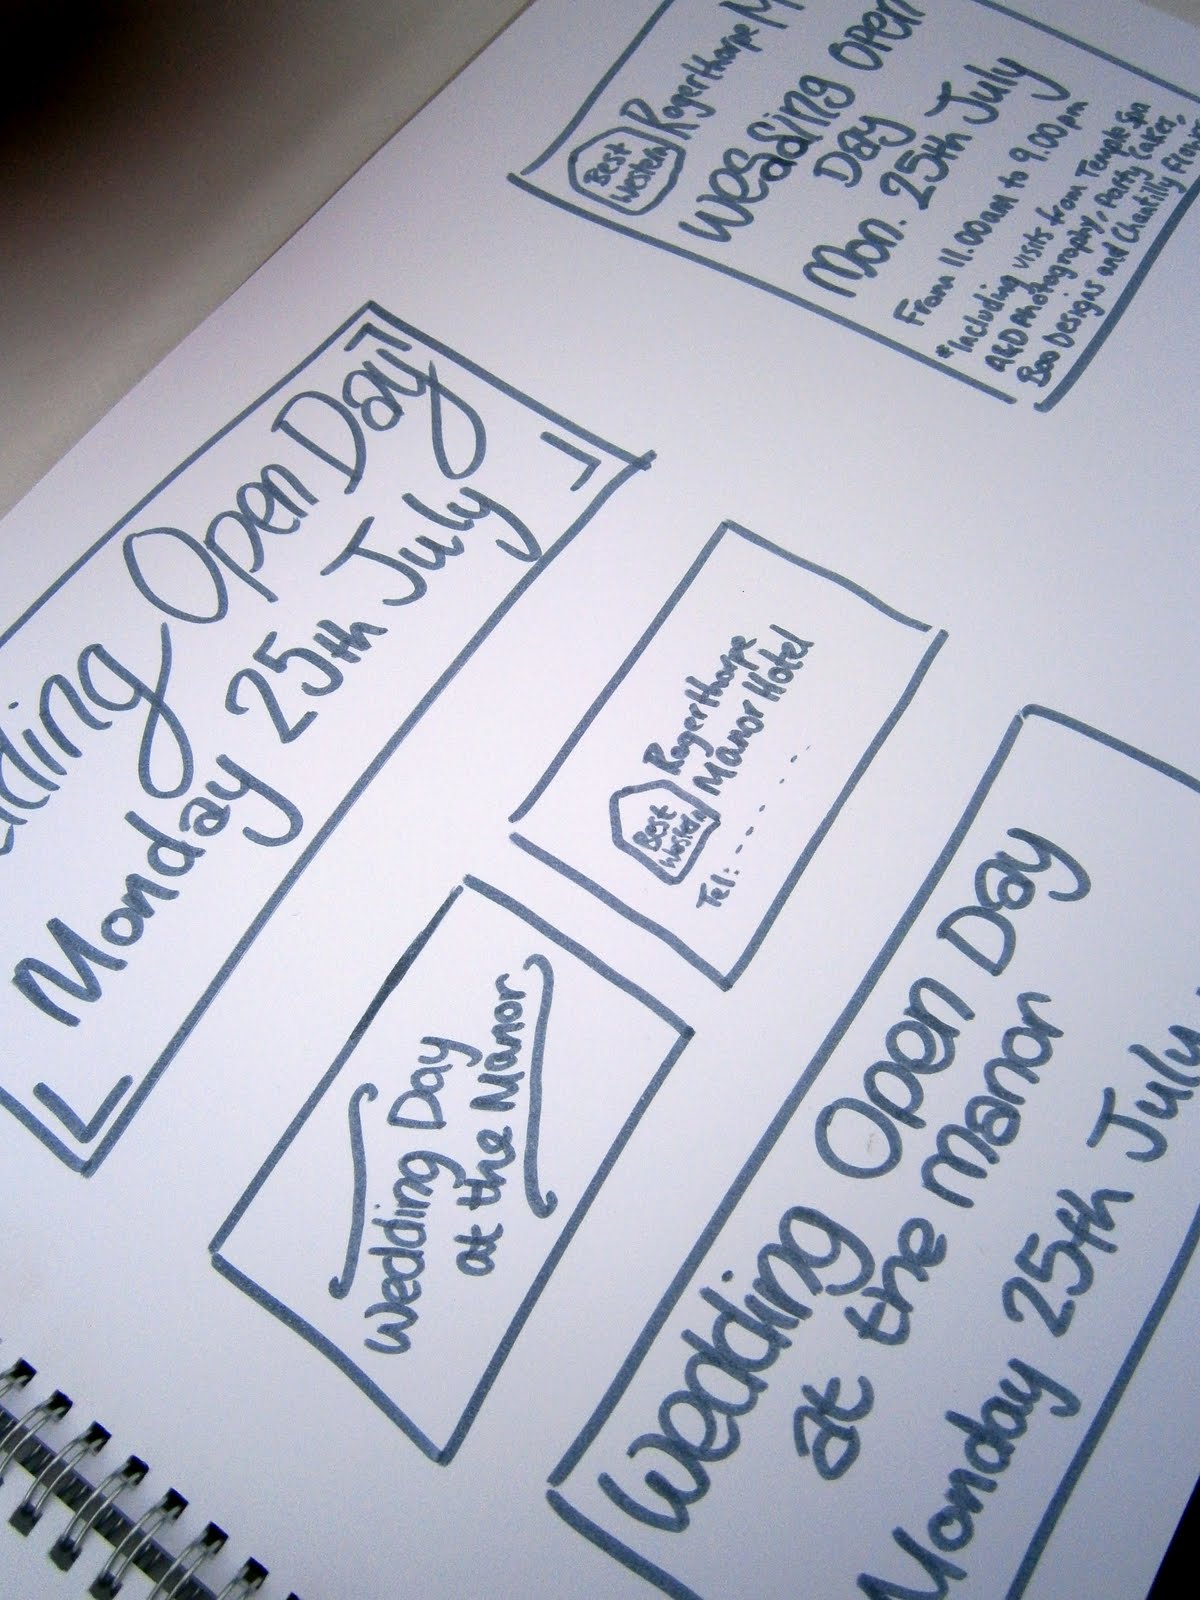 Best
Western
Rogerthorpe M
Wedding Open
Day
Mon. 25th July
From 11.00am to 9.00pm
*Including visits from Temple Spa
A&D Photography, Party Cakes,
Boo Designs and Chantilly Flowe
dding Open Day
Monday 25th July
Best
Western
Rogerthorpe
Manor Hotel
Tel: - - - - - -
Wedding Day
at the Manor
Wedding Open Day
at the manor
Monday 25th July